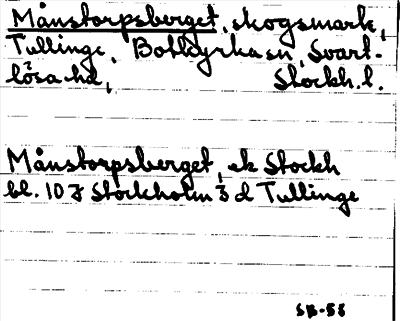 Månstorpsberget, skogsmark,
Tullinge, Botkyrka sn, Svart-
lösa hd, Stockh. l.
Månstorpsberget, ek Stockh
bl. 10 I Stockholm 3 d Tullinge